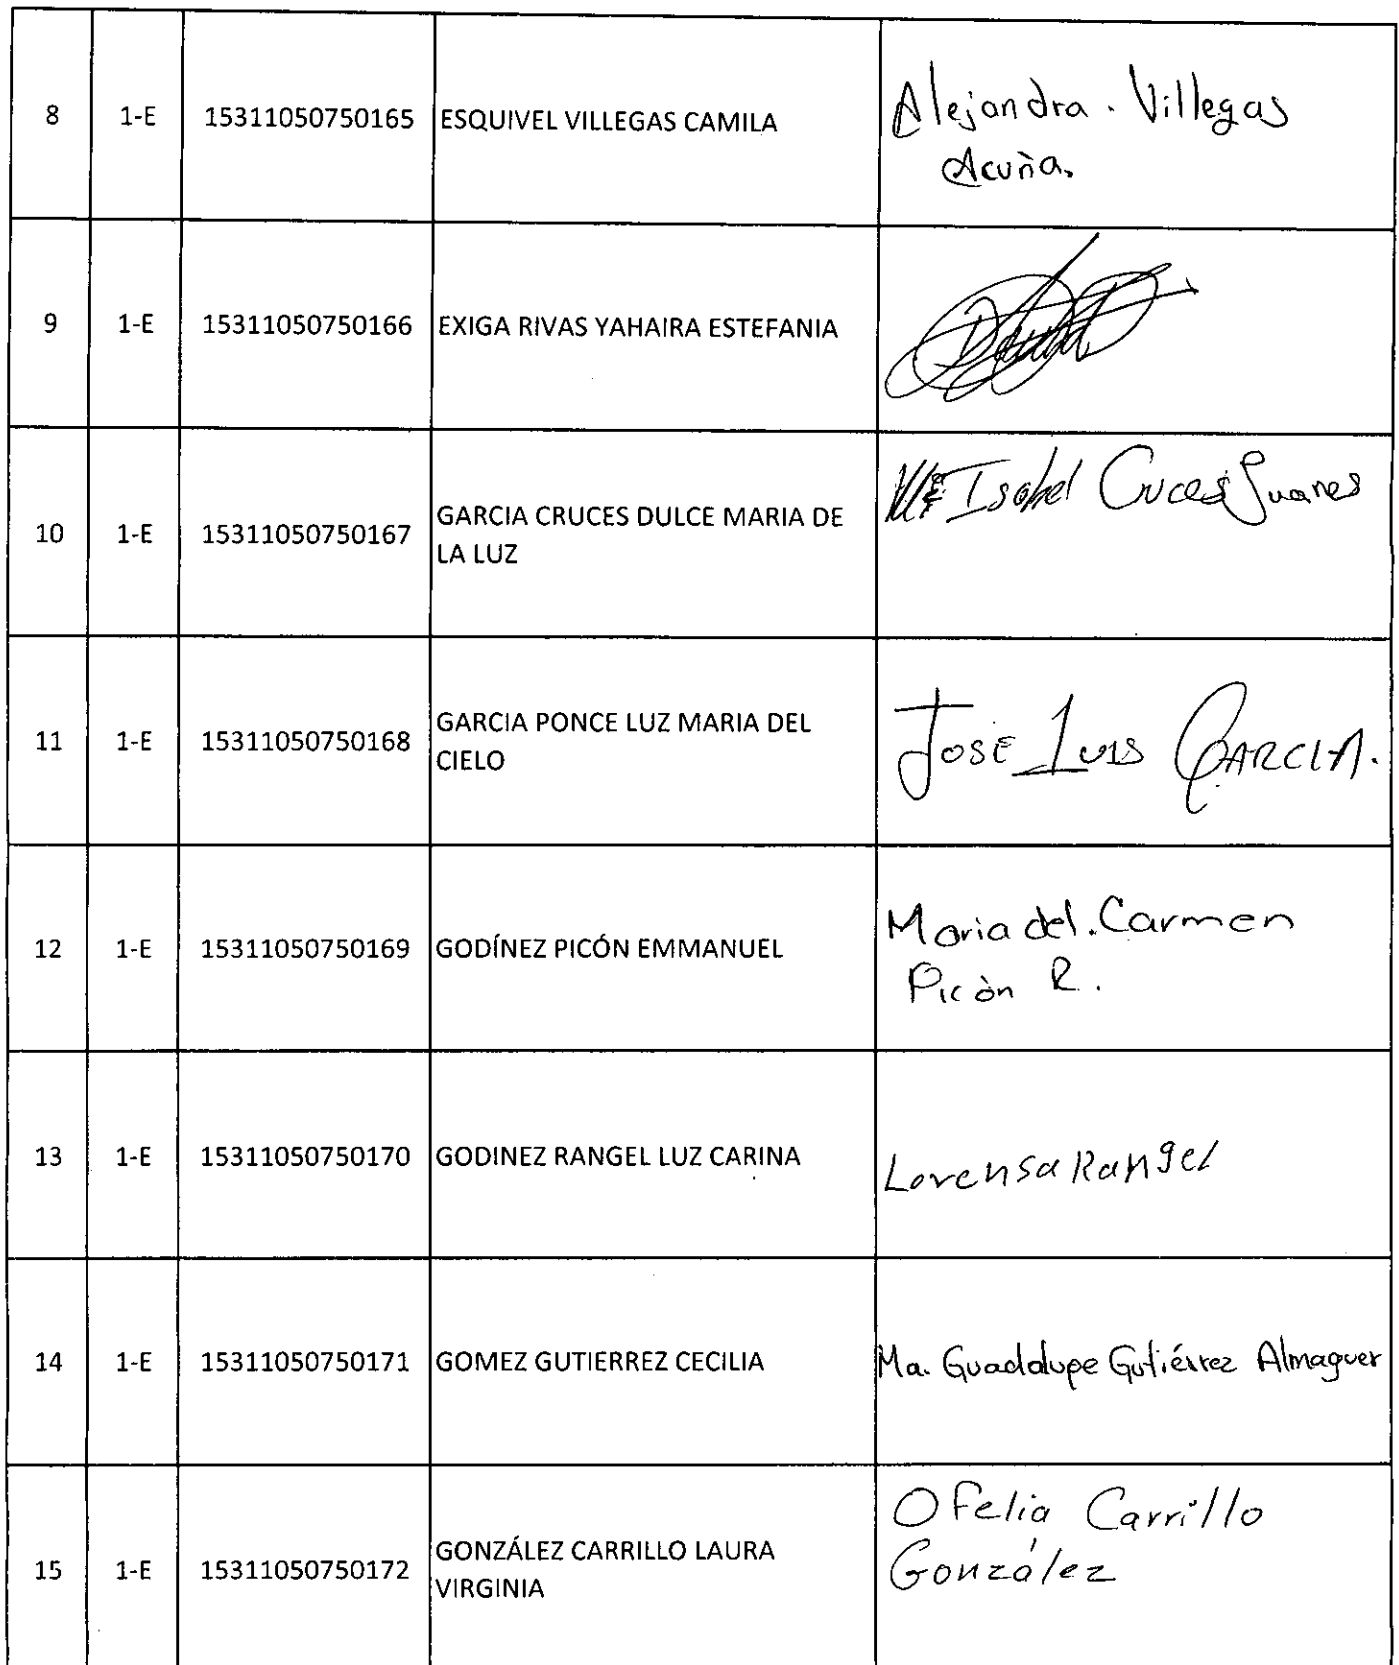 8 1-E 15311050750165 ESQUIVEL VILLEGAS CAMILA Alejandra. Villegas
Acuña.
9 1-E 15311050750166 EXIGA RIVAS YAHAIRA ESTEFANIA
10 1-E 15311050750167 GARCIA CRUCES DULCE MARIA DE
LA LUZ
Isabel Cruces Juares
11 1-E 15311050750168 GARCIA PONCE LUZ MARIA DEL
CIELO
JOSE LUIS GARCIA.
12 1-E 15311050750169 GODÍNEZ PICÓN EMMANUEL Maria del. Carmen
Picòn R.
13 1-E 15311050750170 GODINEZ RANGEL LUZ CARINA Lorensa Rangel
14 1-E 15311050750171 GOMEZ GUTIERREZ CECILIA Ma. Guadalupe Gutiérrez Almaguer
15 1-E 15311050750172 GONZÁLEZ CARRILLO LAURA
VIRGINIA
Ofelia Carrillo
González